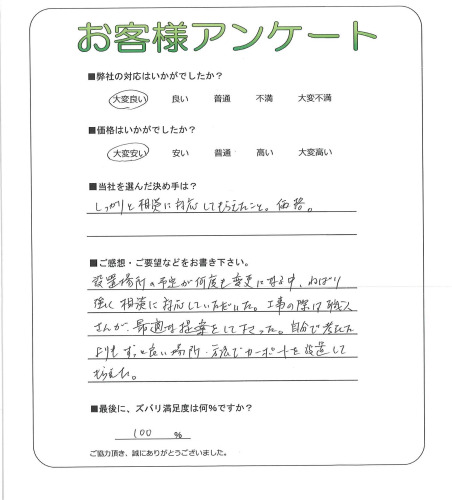 お客様アンケート
■弊社の対応はいかがでしたか？
大変良い 良い 普通 不満 大変不満
■価格はいかがでしたか？
大変安い 安い 普通 高い 大変高い
■当社を選んだ決め手は？
しっかりと相談に対応してもらえたこと。価格。
■ご感想・ご要望などをお書き下さい。
設置場所の予定が何度も変更になる中、ねばり
強く相談に対応していただいた。工事の際は職人
さんが、最適な提案をして下さった。自分で考えた
よりもずっと良い場所・方法でカーポートを設置して
もらえた。
■最後に、ズバリ満足度は何%ですか？
100 %
ご協力頂き、誠にありがとうございました。